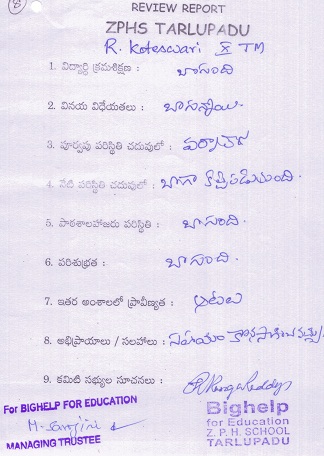 8
REVIEW REPORT
ZPHS TARLUPADU
R. Koteswari X TM
1. విద్యార్థి క్రమశిక్షణ : బాగుంది
2. వినయ విధేయతలు : బాగున్నాయి.
3. పూర్వపు పరిస్థితి చదువులో : పర్వాలేదు
4. నేటి పరిస్థితి చదువులో : బాగా కష్టపడుతుంది.
5. పాఠశాలహాజరు పరిస్థితి : బాగుంది.
6. పరిశుభ్రత : బాగుంది.
7. ఇతర అంశాలలో ప్రావీణ్యత : ఆటలు
8. అభిప్రాయాలు / సలహాలు : సహాయం
9. కమిటి సభ్యుల సూచనలు :
For BIGHELP FOR EDUCATION
MANAGING TRUSTEE
Bighelp
for Education
Z. P. H. SCHOOL
TARLUPADU